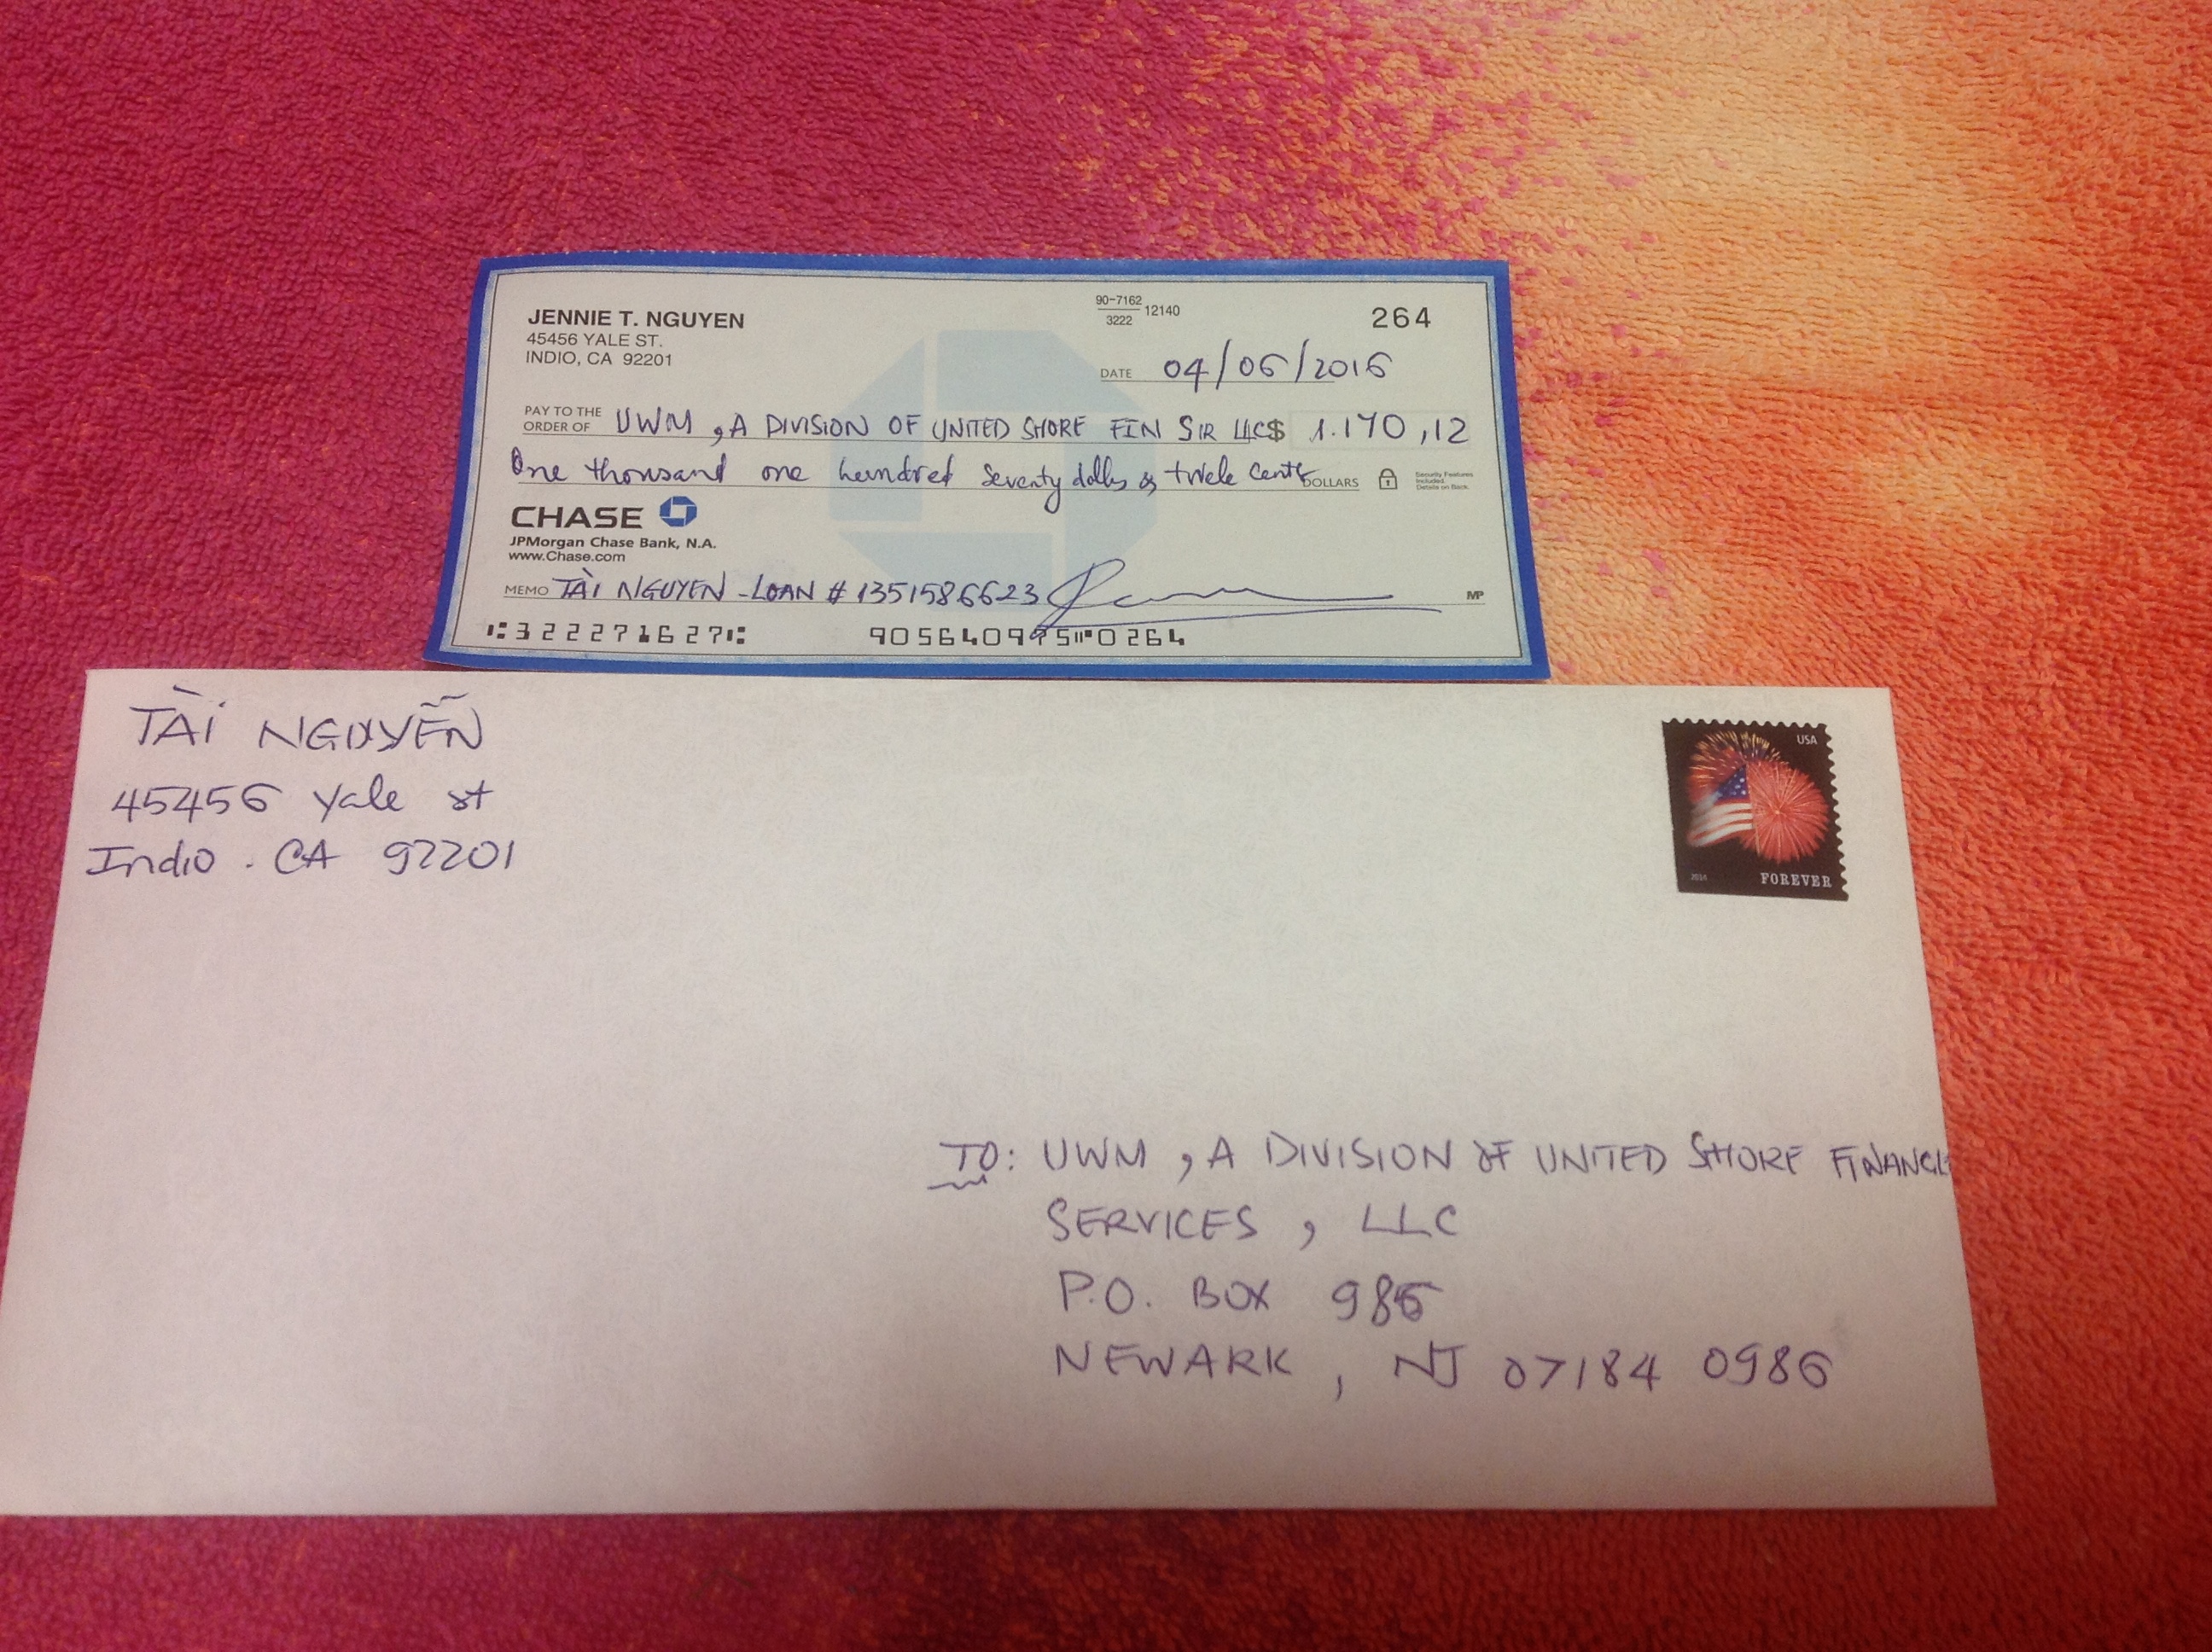 JENNIE T. NGUYEN
45456 YALE ST.
INDIO, CA 92201
90-7162
3222
12140
264
DATE 04/06/2016
PAY TO THE
ORDER OF UWM , A DIVISION OF UNITED SHORE FIN SIR LLC $ 1.170,12
One thousand one hundred seventy dolls & twele cents DOLLARS
Security Features
Included.
Details on Back.
CHASE
JPMorgan Chase Bank, N.A.
www.Chase.com
MEMO TÀI NGUYEN - LOAN # 1351586623
MP
⑆322271627⑆ 905640975⑈0264
TÀI NGUYỄN
45456 Yale st
Indio . CA 92201
USA
2014 FOREVER
TO: UWM , A DIVISION OF UNITED SHORE FINANCIL
SERVICES , LLC
P.O. BOX 986
NEWARK , NJ 07184 0986